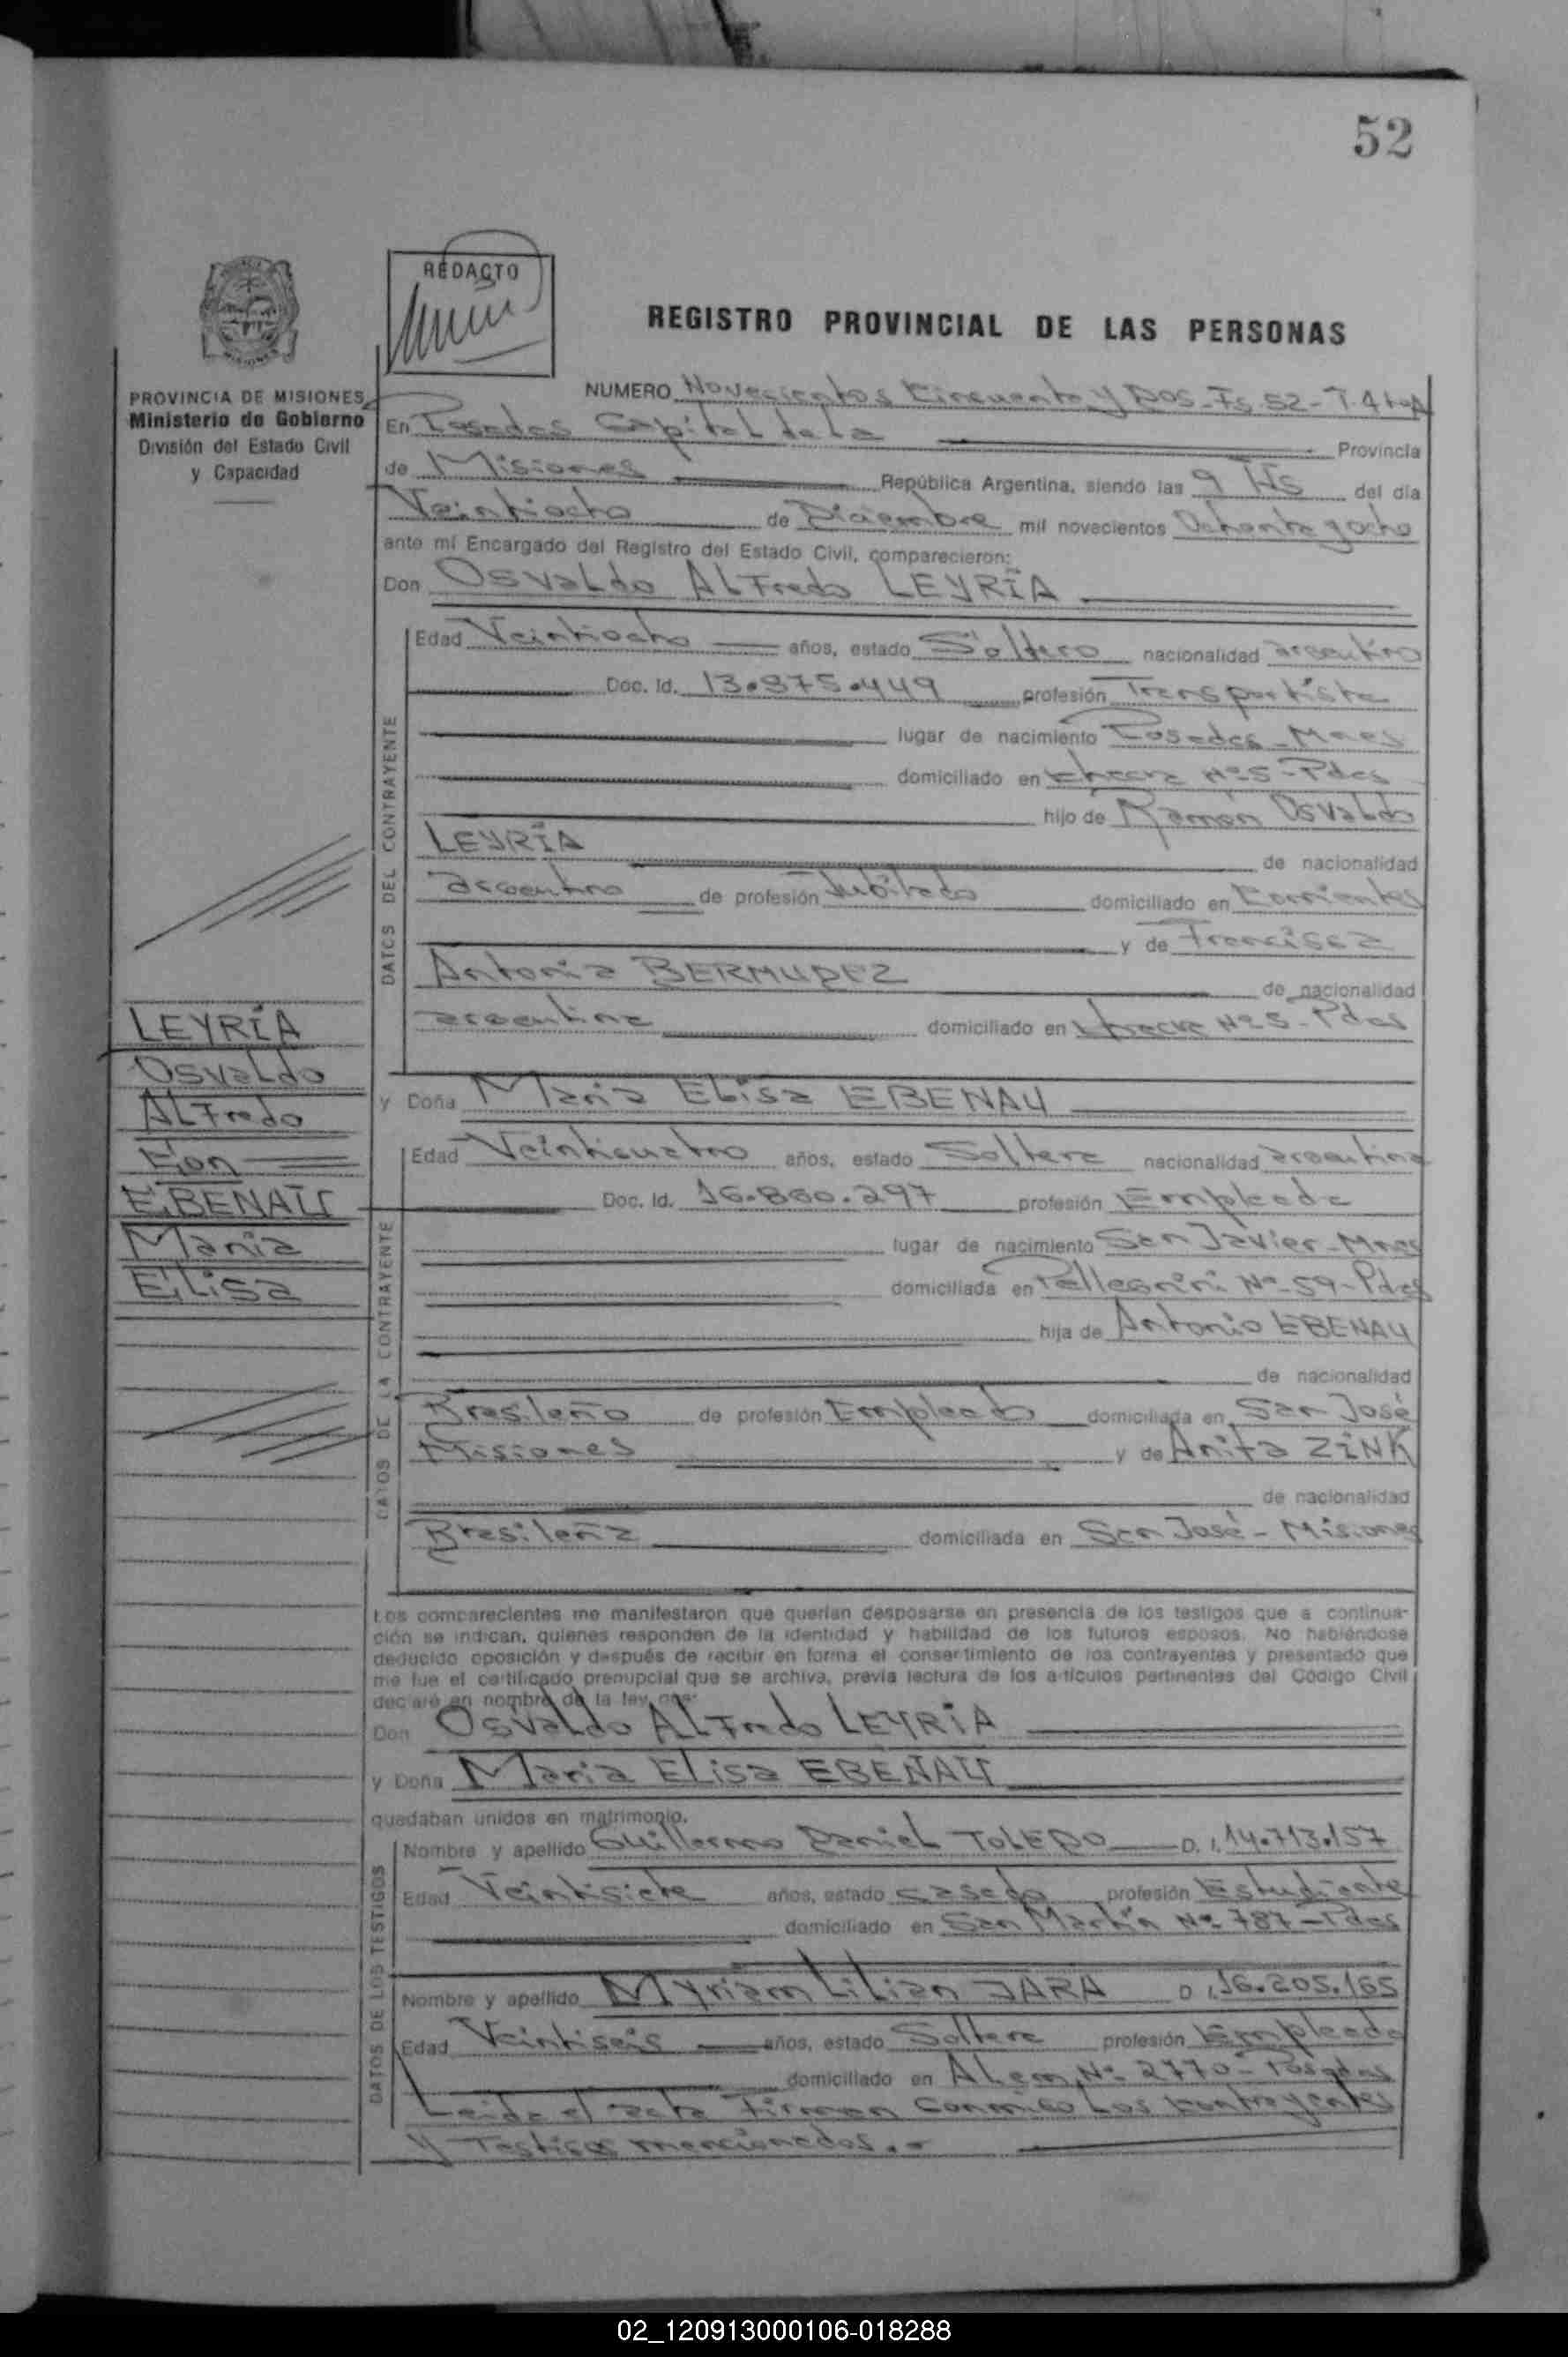 52
REDACTO
REGISTRO PROVINCIAL DE LAS PERSONAS
PROVINCIA DE MISIONES
Ministerio de Gobierno
División del Estado Civil
y Capacidad
NUMERO Novecientos Cincuenta y Dos - Fs. 52 - T. 4
En Posadas Capital de la Provincia
de Misiones República Argentina, siendo las 9 Hs del día
Veintiocho de Diciembre mil novecientos Ochenta y ocho
ante mí Encargado del Registro del Estado Civil, comparecieron:
Don Osvaldo Alfredo LEYRÍA
DATOS DEL CONTRAYENTE
Edad Veintiocho años, estado Soltero nacionalidad argentino
Doc. Id. 13.875.449 profesión Transportista
lugar de nacimiento Posadas - Mnes
domiciliado en Chacra Nº 5 - Pdas
hijo de Ramón Osvaldo
LEYRÍA de nacionalidad
argentino de profesión Jubilado domiciliado en Corrientes
y de Francisca
Antonia BERMUDEZ de nacionalidad
argentina domiciliado en Chacra Nº 5 - Pdas
LEYRÍA
Osvaldo
Alfredo
Con
EBENAU
Maria
Elisa
y Doña Maria Elisa EBENAU
DATOS DE LA CONTRAYENTE
Edad Veinticuatro años, estado Soltera nacionalidad argentina
Doc. Id. 16.860.297 profesión Empleada
lugar de nacimiento San Javier - Mnes
domiciliada en Pellegrini Nº 59 - Pdas
hija de Antonio EBENAU
de nacionalidad
Brasileño de profesión Empleado domiciliada en San José
Misiones y de Anita ZINK
de nacionalidad
Brasileña domiciliada en San José - Misiones
Los comparecientes me manifestaron que querían desposarse en presencia de los testigos que a continua-
ción se indican, quienes responden de la identidad y habilidad de los futuros esposos. No habiéndose
deducido oposición y después de recibir en forma el consentimiento de los contrayentes y presentado que
me fue el certificado prenupcial que se archiva, previa lectura de los artículos pertinentes del Código Civil
declaré en nombre de la ley que:
Don Osvaldo Alfredo LEYRÍA
y Doña Maria Elisa EBENAU
quedaban unidos en matrimonio.
DATOS DE LOS TESTIGOS
Nombre y apellido Guillermo Daniel TOLEDO D.I. 14.713.157
Edad Veintisiete años, estado casado profesión Estudiante
domiciliado en San Martín Nº 787 - Pdas
Nombre y apellido Myriam Lilian JARA D.I. 16.205.165
Edad Veintiseis años, estado Soltera profesión Empleada
domiciliado en Alem Nº 2770 - Posadas
Leida el acta Firman Conmigo Los Contrayentes
y Testigos mencionados.-
02_120913000106-018288